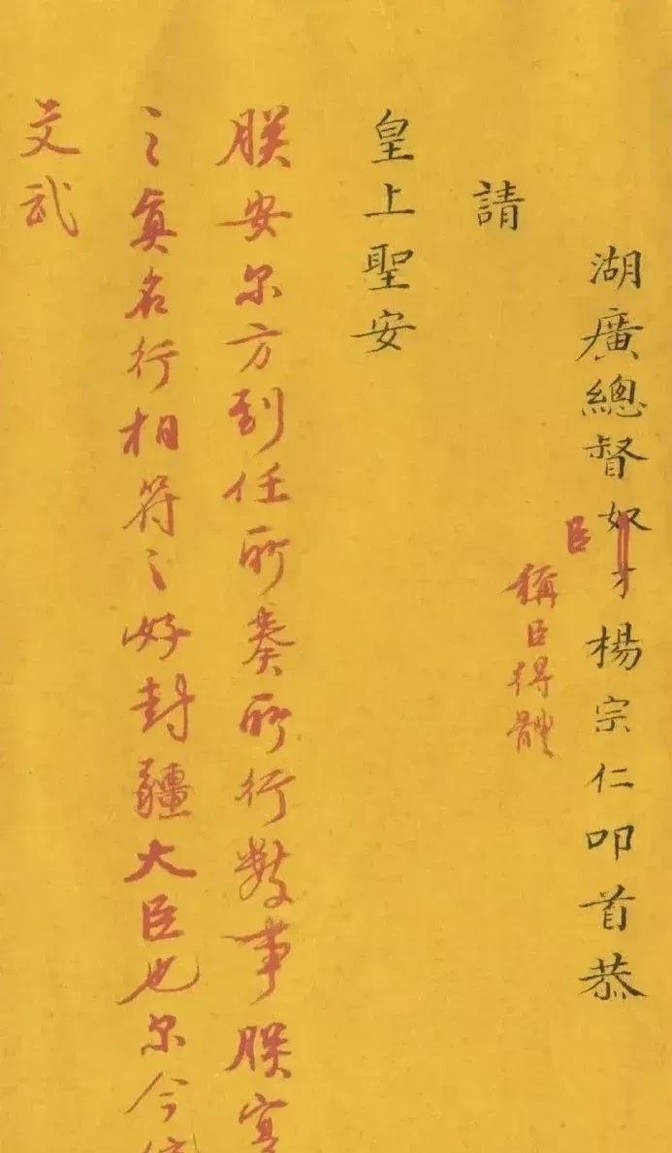 湖廣總督奴才楊宗仁叩首恭
臣
稱臣得體
請
皇上聖安
朕安尔方到任所奏所行數事朕實
之真名行相符之好封疆大臣也尔今
文武